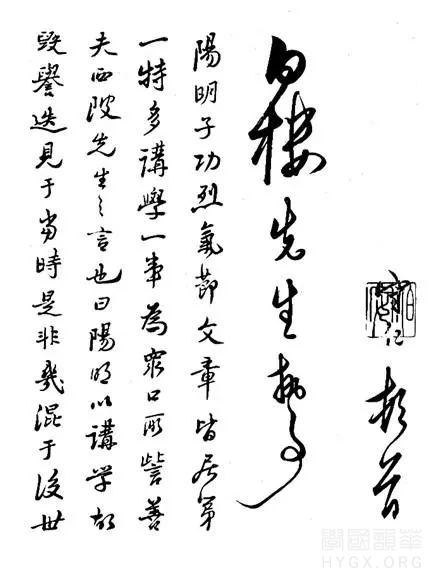 守仁頓首
白樓先生執事
陽明子功烈氣節文章皆居第
一特多講學一事為眾口所訾善
夫西陂先生之言也曰陽明以講學故
毀譽迭見于當時是非幾混于後世
華韻國學
HYGX.ORG